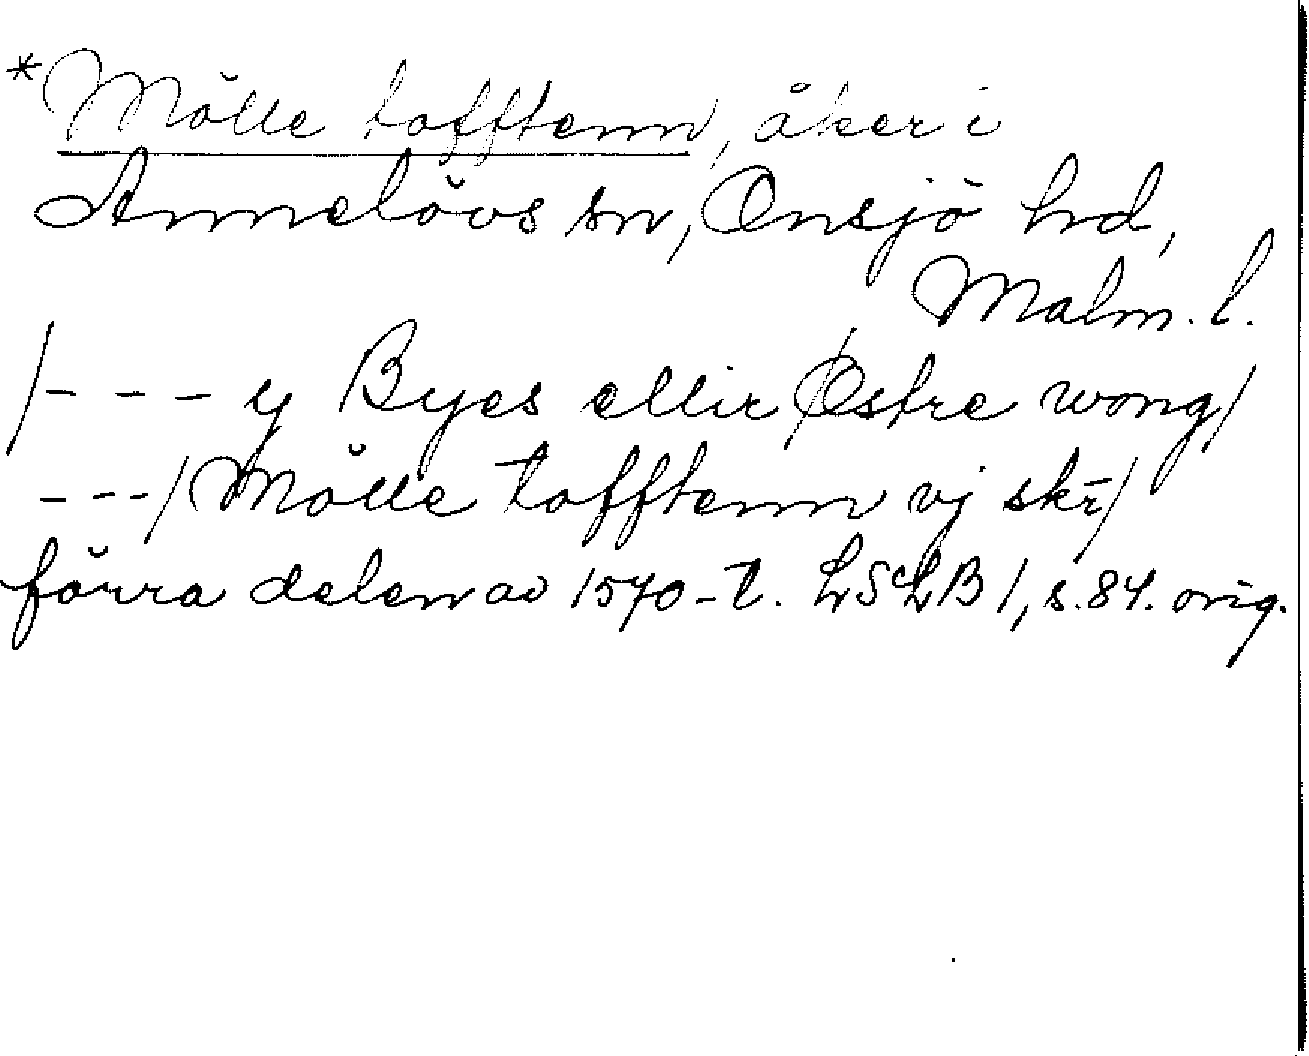 *Mölle tofftenn, åker i
Annelövs sn, Onsjö hd,
Malm. l.
/- - - y Byes ellir Østre wong/
- - -/ Mölle tofftenn vj skr/
förra delen av 1570-t. LSLB 1, s. 84. orig.